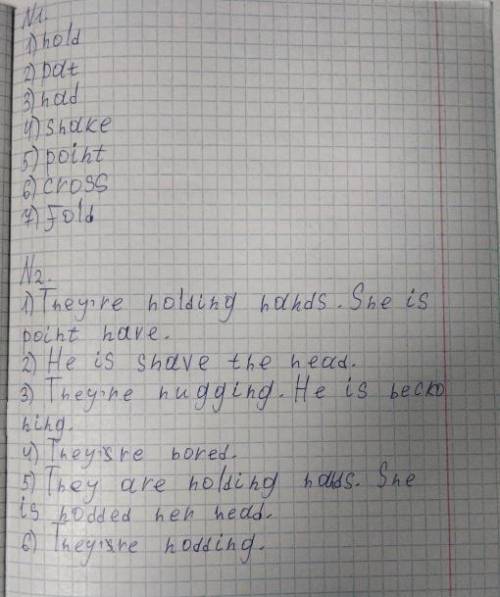 N1.
1) hold
2) pat
3) nad
4) shake
5) point
6) cross
7) Fold
N2.
1) They're holding hands. She is
point have.
2) He is shave the head.
3) They're hugging. He is becko
ning.
4) They're bored.
5) They are holding hands. She
is nodded her head.
6) They're nodding.